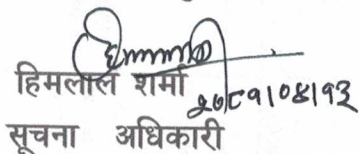 हिमलाल शर्मा
२०८१।०४।१३
सूचना अधिकारी